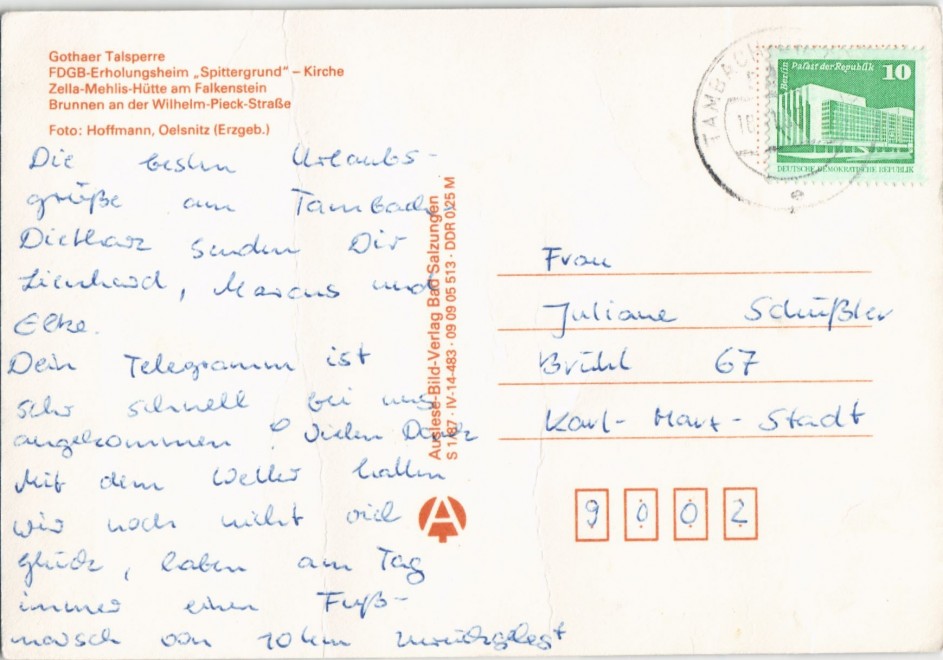 Gothaer Talsperre
FDGB-Erholungsheim „Spittergrund“ – Kirche
Zella-Mehlis-Hütte am Falkenstein
Brunnen an der Wilhelm-Pieck-Straße
Foto: Hoffmann, Oelsnitz (Erzgeb.)
Die besten Urlaubs-
grüße aus Tambach-
Dietharz senden Dir
Lienhard, Marcus und
Elke.
Dein Telegramm ist
sehr schnell bei uns
angekommen! Vielen Dank
Mit dem Wetter hatten
wir noch nicht viel
Glück, haben am Tag
immer einen Fuß-
marsch von 10 km zurückgelegt
Auslese-Bild-Verlag Bad Salzungen
S 1/87 · IV-14-483 · 09 09 05 513 · DDR 0,25 M
A
TAMBACH
Berlin Palast der Republik 10
DEUTSCHE DEMOKRATISCHE REPUBLIK
Frau
Juliane Schüßler
Brühl 67
Karl-Marx-Stadt
9002